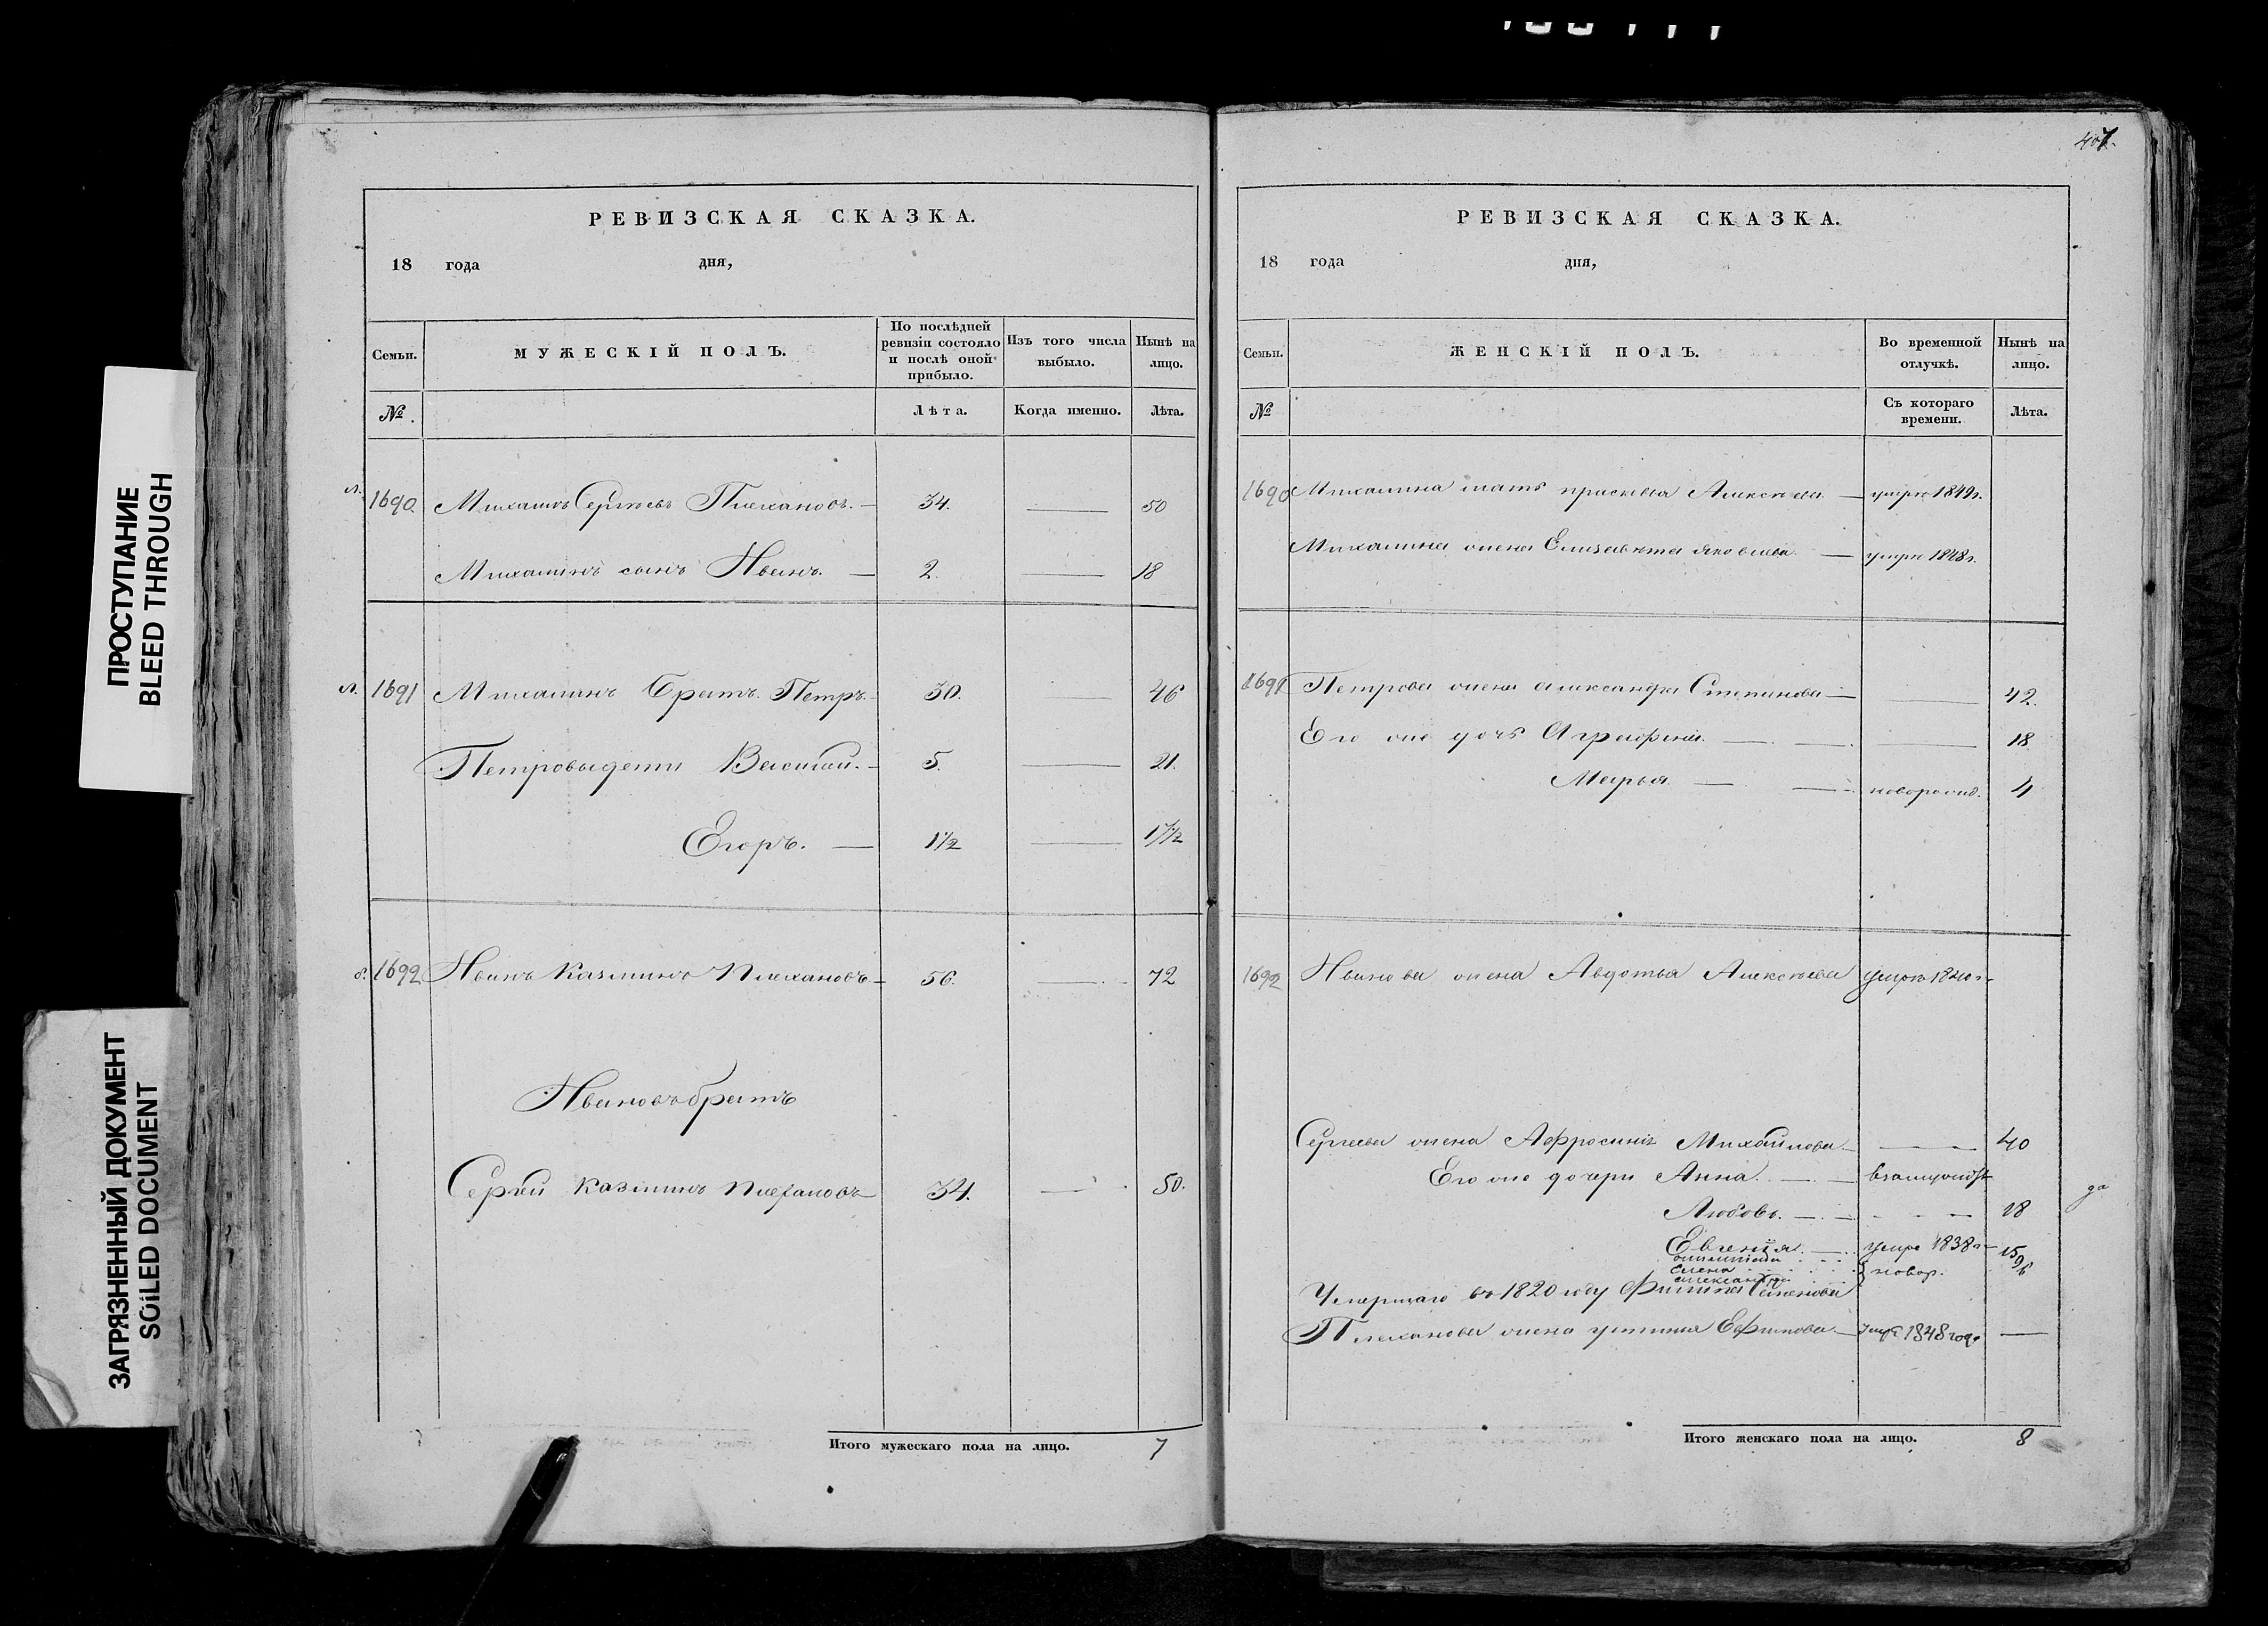 407.
ПРОСТУПАНИЕ
BLEED THROUGH
ЗАГРЯЗНЕННЫЙ ДОКУМЕНТ
SOILED DOCUMENT
РЕВИЗСКАЯ СКАЗКА.
18 года дня,
Семьи. МУЖЕСКІЙ ПОЛЪ. По послѣдней ревизіи состояло и послѣ оной прибыло. Изъ того числа выбыло. Нынѣ на лицо.
№ Лѣта. Когда именно. Лѣта.
л. 1690. Михаилъ Сергѣевъ Плехановъ. — 34. — 50
Михаилинъ сынъ Иванъ. — 2. — 18
л. 1691 Михаилинъ братъ Петръ. — 30. — 46
Петровы дети Василий. — 5. — 21.
Егоръ. — 1½ — 17½
б. 1692 Иванъ Казминъ Плехановъ — 56. — 72
Ивановъ братъ
Сергей Казминъ Плехановъ — 34. — 50.
Итого мужескаго пола на лицо. 7
РЕВИЗСКАЯ СКАЗКА.
18 года дня,
Семьи. ЖЕНСКІЙ ПОЛЪ. Во временной отлучкѣ. Нынѣ на лицо.
№ Съ котораго времени. Лѣта.
1690 Михаилина мать Прасковья Алексѣева — 1849г.
Михаилина жена Елизавета Яковлева — 1848г.
1691 Петрова жена Александра Степанова — — 42.
Его же дочь Аграфена. — — 18
Марья. — — новорожд. 4
1692 Иванова жена Авдотья Алексѣева 1840г.
Сергеева жена Афросинья Михайлова — — 40
Его же дочери Анна. — — взамужст
да
Любовь. — — — 18
Евгенія. — умре 1838г —
Елена новор.
Александра
Умершаго въ 1820 году Филипа Семенова
Плеханова жена Устинья Ефимова — умре 1848 года —
Итого женскаго пола на лицо. 8